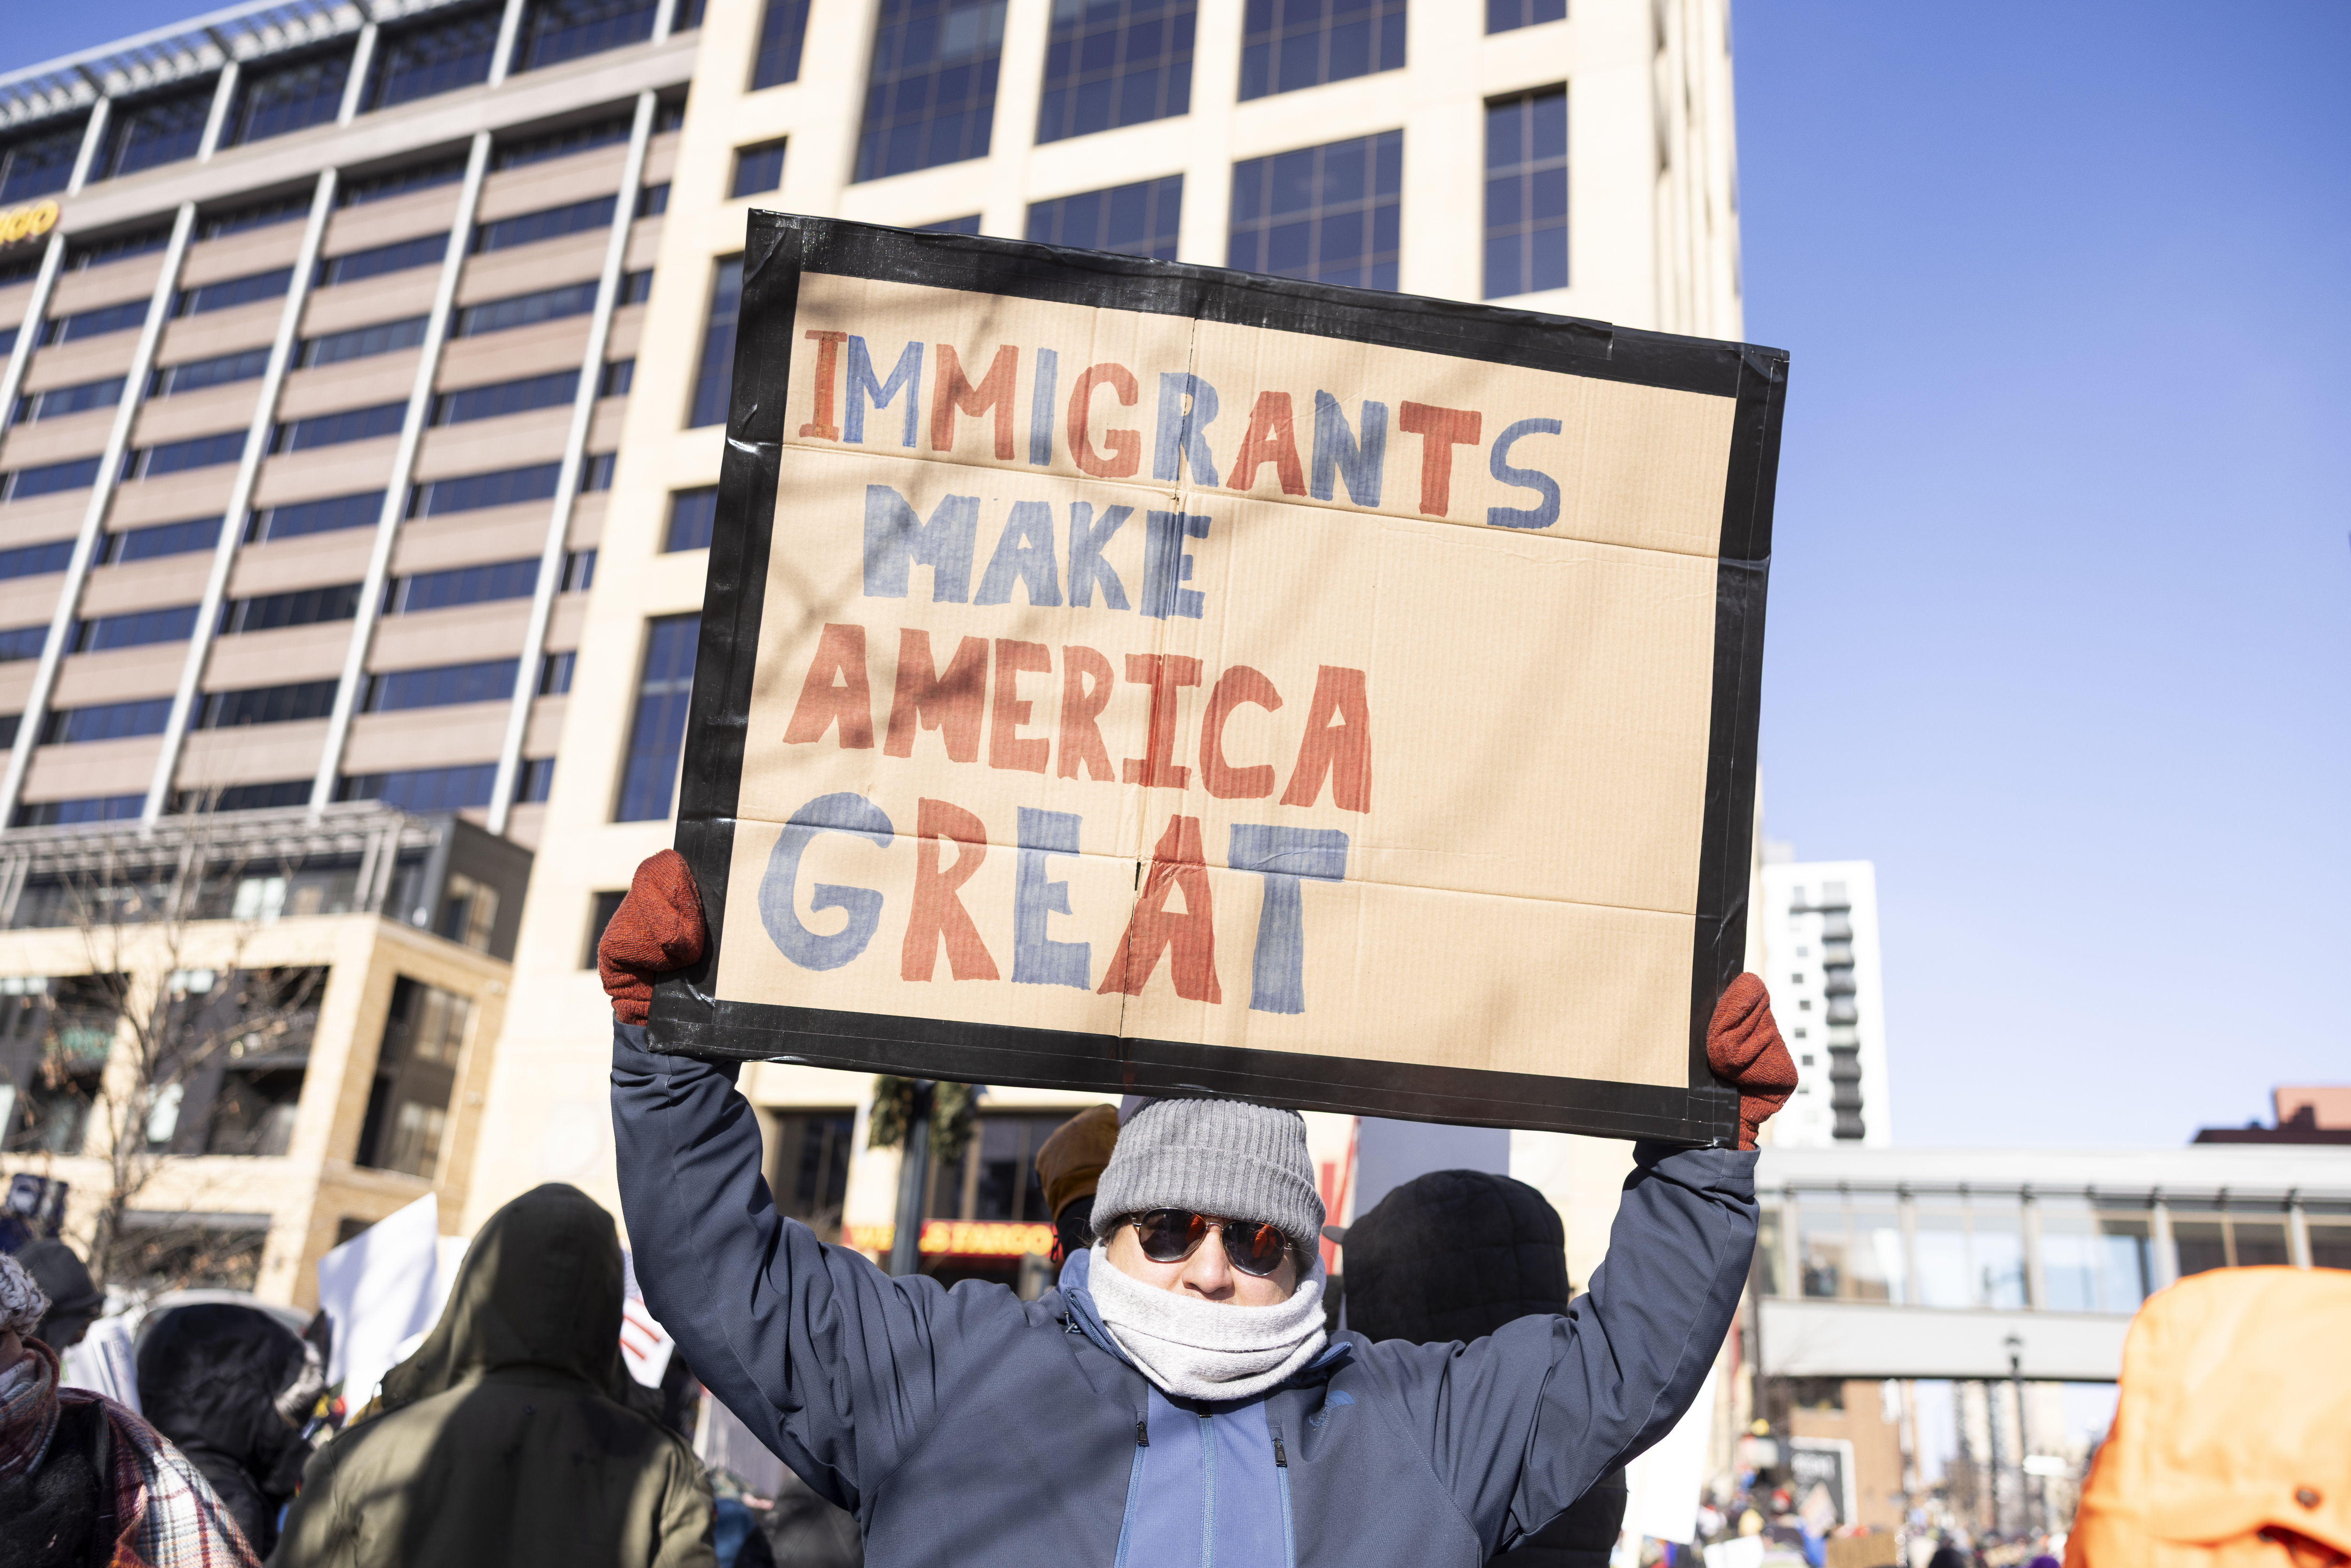 IMMIGRANTS
MAKE
AMERICA
GREAT
WELLS FARGO